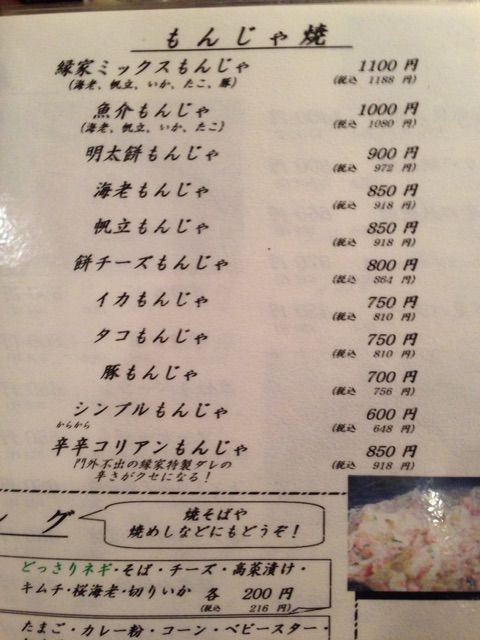 もんじゃ焼
縁家ミックスもんじゃ 1100 円
(海老、帆立、いか、たこ、豚) (税込 1188 円)
魚介もんじゃ 1000 円
(海老、帆立、いか、たこ) (税込 1080 円)
明太餅もんじゃ 900 円
(税込 972 円)
海老もんじゃ 850 円
(税込 918 円)
帆立もんじゃ 850 円
(税込 918 円)
餅チーズもんじゃ 800 円
(税込 864 円)
イカもんじゃ 750 円
(税込 810 円)
タコもんじゃ 750 円
(税込 810 円)
豚もんじゃ 700 円
(税込 756 円)
シンプルもんじゃ 600 円
(税込 648 円)
からから
辛辛コリアンもんじゃ 850 円
門外不出の縁家特製ダレの (税込 918 円)
辛さがクセになる!
ング
焼そばや
焼めしなどにもどうぞ!
どっさりネギ・そば・チーズ・高菜漬け・
キムチ・桜海老・切りいか 各 200 円
(税込 216 円)
たまご・カレー粉・コーン・ベビースター・